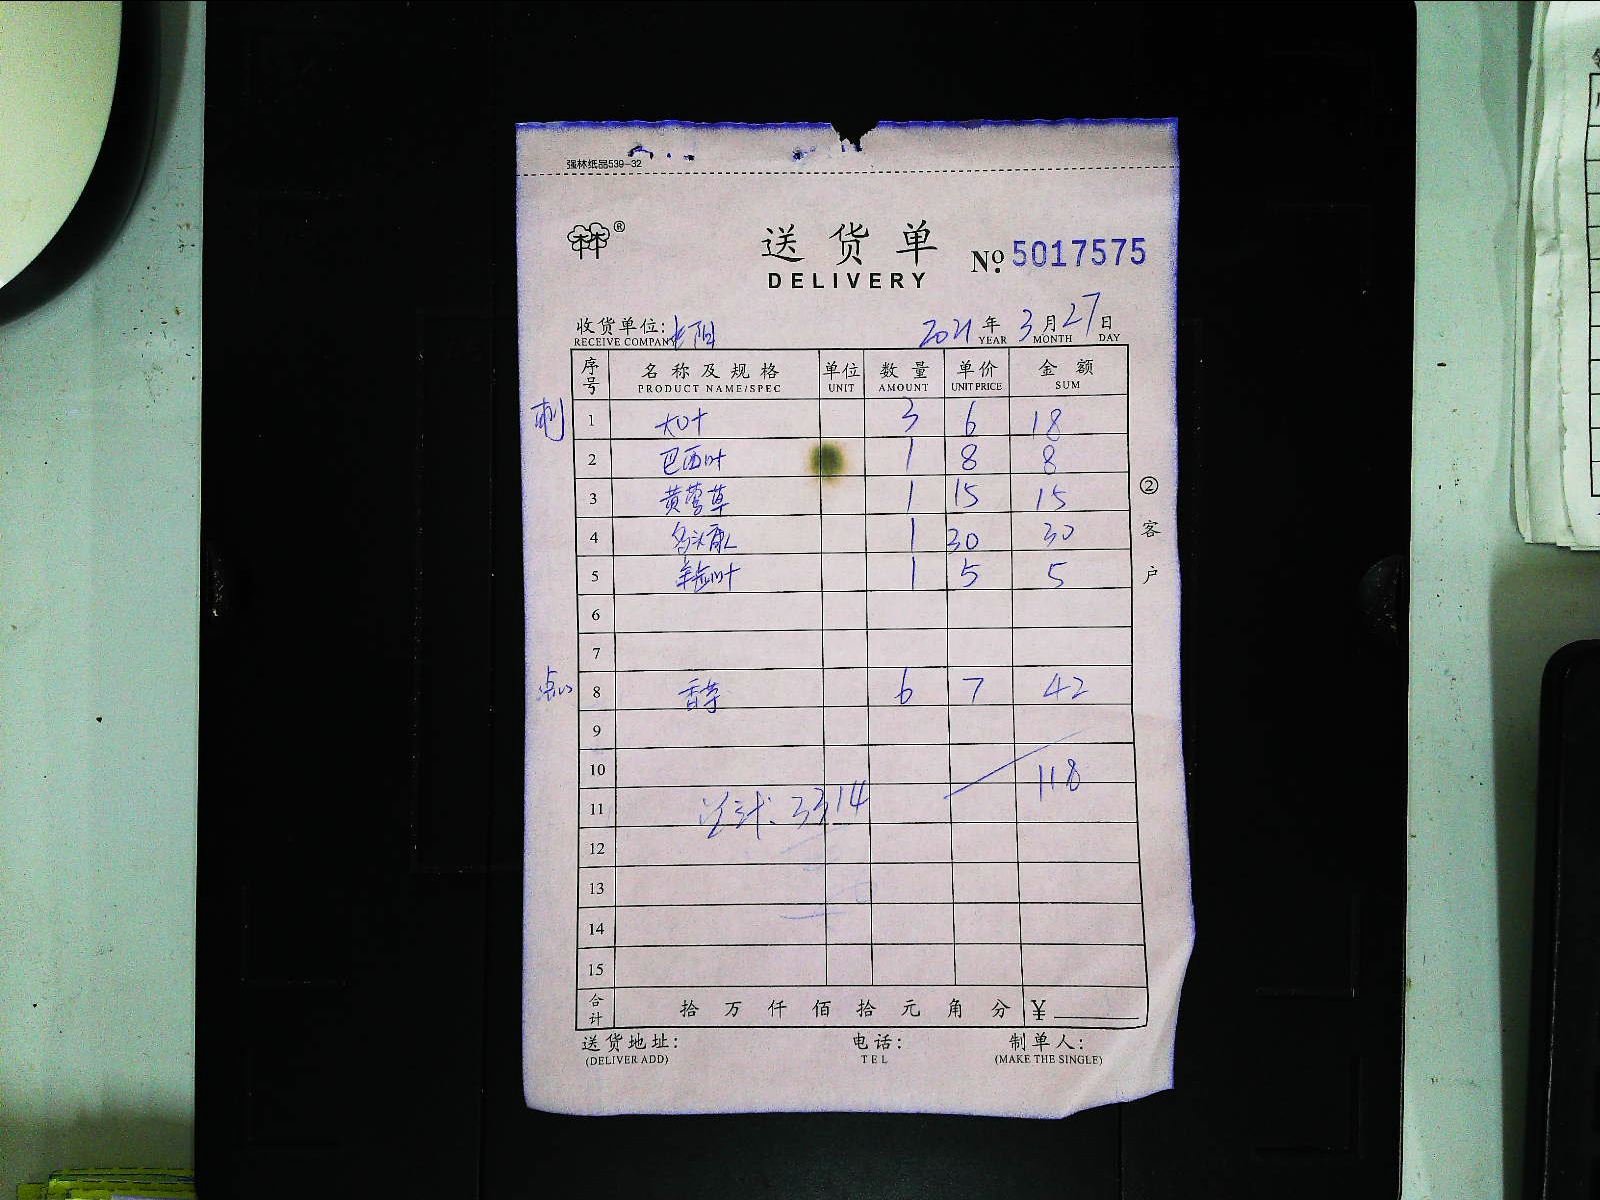 强林纸品539-32
送货单
DELIVERY
№ 5017575
收货单位: 长阳 2021年3月27日
RECEIVE COMPANY YEAR MONTH DAY
序号 名称及规格 单位 数量 单价 金额
PRODUCT NAME/SPEC UNIT AMOUNT UNIT PRICE SUM
刺 1 大叶 3 6 18
2 巴西叶 1 8 8
3 黄莺草 1 15 15
4 1 30 30
5 叶 1 5 5
6
7
点心 8 香草 6 7 42
9
10 118
11 总计: 3314
12
13
14
15
合计 拾万仟佰拾元角分 ¥
②客户
送货地址: 电话: 制单人:
(DELIVER ADD) TEL (MAKE THE SINGLE)